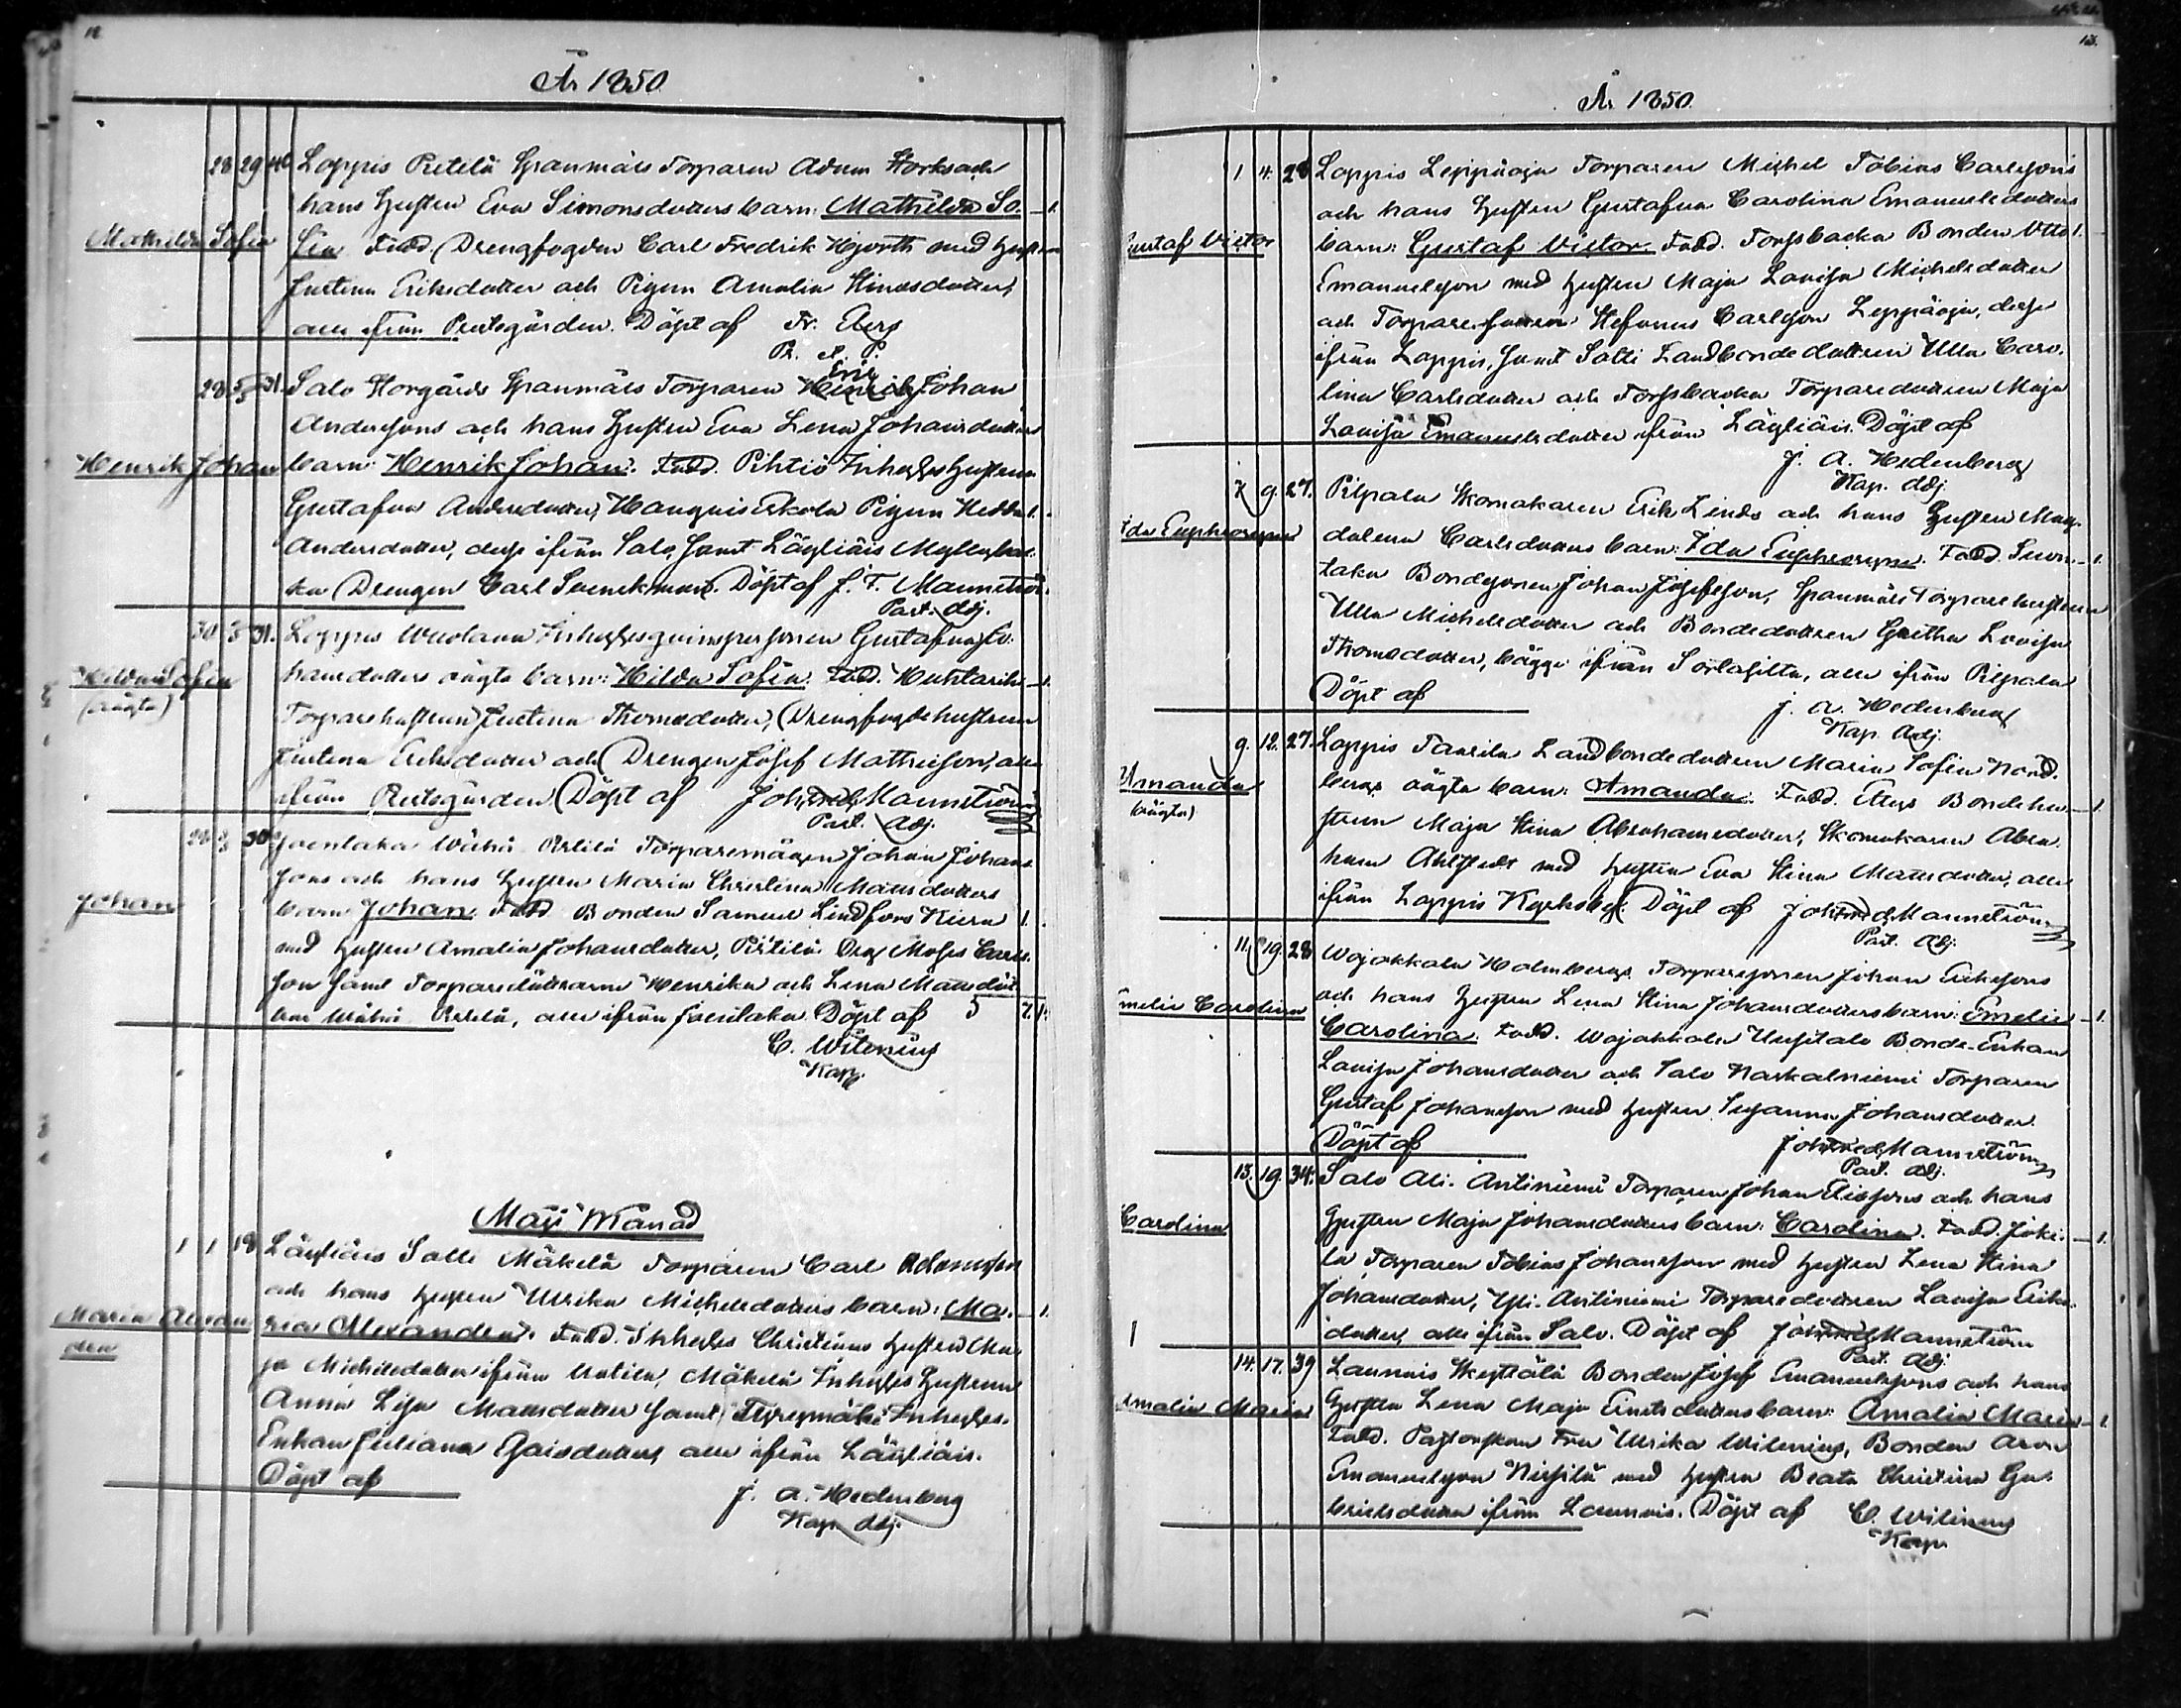 12
År 1850
28 29 40 Loppis Pietilä Spanmäls Torparen Adam Storks och
hans Hustru Eva Simonsdotters barn: Mathilda So- 1.
Mathilda Sofia
fia Fadd. Drengfogden Carl Fredrik Hjorth med Hustru
Justina Eriksdotter och Pigan Amalia Hindsdotter,
alla ifrån Prestgården. Döpt af Fr. Elers
Pr. A. P.
28 5/5 31. Salo Storgårds Spanmäls Torparen Henrik Erik Johan
Anderssons och hans Hustru Eva Lena Johansdotters
Henrik Johan barn: Henrik Johan. Fadd. Pihtiö Inhyses Hustrun
Gustafva Andersdotter, Hauguis Eskola Pigan Hedda 1.
Andersdotter, desse ifrån Salo, samt Läyliäis Myllyha-
ka Drengen Carl Svenskman. Döpt af J. F. Mannströ.
Past. Adj.
30 5/5 31. Loppis Inhysesqvinspersonen Gustafva Jo-
Hilda Sofia
hansdotters oägta barn: Hilda Sofia. Fadd. Huhtarih 1.
(oägta)
Torparehustrun Justina Thomsdotter, Drengfogdehustrun
Justina Eriksdotter och Drengen Josef Mathiesson, alla
ifrån Prestgården Döpt af Joh. Fred. Mannström
Past. Adj.
Joentaka Wähä Pertilä Torparemågen Johan Johans-
sons och hans Hustru Maria Christina Mattsdotters
Johan
barn Johan. Fadd. Bonden Samuel Lindfors Kiera 1.
med Hustru Amalia Johansdotter, Pertilä Dreng Moses Carls-
son samt Torparedöttrarna Henrika och Lena Mattsdöt-
trar Wähä Pertilä, alla ifrån Joentaka. Döpt af 5 7.
C. Wilenius
Kapp.
Maji Månad
1 1 18 Läyliäis Salli Mäkelä Torparen Carl Adamsson
och hans Hustru Ulrika Michelsdotters barn: Ma- 1.
Maria Alexan
dra
ria Alexandra. Fadd. Inhyses Christians Hustru Ma-
ja Michelsdotter ifrån Uotila, Mäkelä Inhyses Hustrun
Anna Lisa Mattsdotter samt Inhyses
Enkan Juliana Esaisdotter, alla ifrån Läyliäis.
Döpt af
J. A. Hedenberg
Kap. Adj.
13.
År 1850
1 4. 28 Loppis Leppäoja Torparen Michel Tobias Carlssons
och hans Hustru Gustafva Carolina Emanuelsdotters
Gustaf Victor
barn: Gustaf Victor. Fadd. Forssbacka Bonden Otto 1.
Emanuelsson med Hustru Maja Lovisa Michelsdotter
och Torparesonen Stefanus Carlsson Leppäoja, desse
ifrån Loppis, samt Salti Landbondedottren Ulla Caro-
lina Carlsdotter och Forssbacka Torparedottren Maja
Lovisa Emanuelsdotter ifrån Läyliäis Döpt af
J. A. Hedenberg
Kap. Adj.
7 9. 27. Pilpala Skomakaren Erik Linds och hans Hustru Mag-
Ida Euphrosyne
dalena Carlsdotters barn: Ida Euphrosyne. Fadd. Suon- 1.
taka Bondesonen Johan Josefsson, Spanmäls Torparehustrun
Ulla Michelsdotter och Bondedottren Gretha Lovisa
Thomsdotter, bägge ifrån Sorlasilta, alla ifrån Pilpala
Döpt af
J. A. Hedenberg
Kap. Adj.
9. 12. 27. Loppis Taurila Landbondedottren Maria Sofia Nord-
Amanda
(oägta)
bergs oägta barn: Amanda. Fadd. Bondehu- 1.
strun Maja Stina Abrahamsdotter, Skomakaren Abra-
ham Ahlstedt med Hustru Eva Stina Mattsdotter, alla
ifrån Loppis Kyrkoby. Döpt af Joh Fred Mannström
Past. Adj.
11. 19. 28 Wojakkala Holmbergs Torparesonen Johan Erikssons
och hans Hustru Lena Stina Johansdotters barn: Emelie 1.
Emelie Carolina
Carolina. Fadd. Wojakkala Uusitalo Bonde-Enkan
Lovisa Johansdotter och Salo Naskalniemi Torparen
Gustaf Johansson med Hustru Susanna Johansdotter.
Döpt af
Joh Fred. Mannström
Past. Adj.
13. 19. 34. Salo Ali-Antiniemi Torparen Johan Eliassons och hans
Carolina
Hustru Maja Johansdotters barn: Carolina. Fadd. Joki- 1.
la Torparen Tobias Johansson med Hustru Lena Stina
Johansdotter, Yli-Antiniemi Torparedottren Lovisa Eriks-
dotter, alla ifrån Salo. Döpt af Joh Fred Mannström
Past. Adj.
14. 17. 39 Launnis Skyttälä Bonden Josef Emanuelssons och hans
Amalia Maria
Hustru Lena Maja Eriksdotters barn: Amalia Maria 1.
Fadd. Pastorskan Fru Ulrika Wilenius, Bonden Aron
Emanuelsson Niesilä med Hustru Beata Christina Ga-
brielsdotter ifrån Launnis. Döpt af C. Wilenius
Kapp.